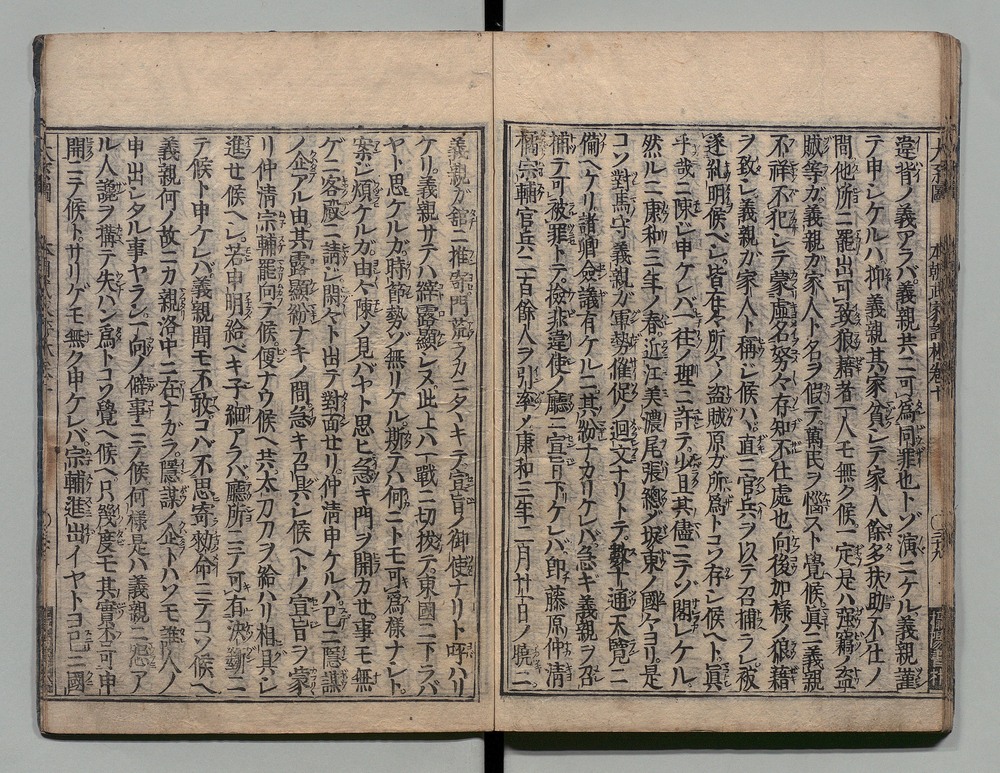 違背ノ義アラバ義親共ニ可為同罪也トゾ演ニケル義親謹
テ申シケルハ抑義親其家貧レテ家人餘多扶助不仕ノ
間他所ニ罷出可致狼藉者一人モ無ク候一定是ハ强竊ノ盗
賊等ガ義親ガ家人ト名ヲ假テ萬民ヲ惱スト覺候眞ニ義親
不祥不犯レテ蒙虚名努々存知不仕處也向後加様ノ狼藉
ヲ致シ義親ガ家人ト稱シ候ハヾ直ニ官兵ヲ以テ召捕ラレ被
遂糺明候ベシ皆在々所々ノ盗賊原ガ所爲トコソ存シ候ヘト眞
乎哉ニ陳シ申ケレバ一往ノ理ニ許テ少日其儘ニテゾ閣レケル
然ルニ康和三年ノ春近江美濃尾張總ジ坂東ノ國々ヨリ是
コソ對馬守義親ガ軍勢催促ノ迴文ナリトテ數十通天覽ニ
備ヘケリ諸卿僉議有ケルニ其紛ナカリケレバ急ギ義親ヲ召
捕テ可被罪トテ撿非違使ノ廳ニ宣旨下ケレバ即藤原仲清
橘宗輔官兵二百餘人ヲ引率メ康和三年二月廿日ノ曉ニ
義親ガ舘ニ推寄門荒ラカニタヽキテ宣旨ノ御使ナリト呼ハリ
ケリ義親サテハ露顯レヌ此上ハ一戰ニ切拔テ東國ニ下ラバ
ヤト思ケルガ時節勢ゾ無リケル斯テハ何ニトモ可爲様ナシト
案シ煩ケルガ由々陳メ見バヤト思ヒ急キ門ヲ開カセ事モ無
ゲニ客殿ニ請シ閑々ト出テ對面セリ仲清申ケルハ已ニ隱謀
ノ企アル由其露顯紛ナキノ間急キ召具シ候ヘトノ宣旨ヲ蒙
リ仲清宗輔罷向テ候便ナウ候ヘ共太刀刀ヲ給ハリ相具レ
進セ候ヘシ若申明給ベキ子細アラバ廳所ニテ可有決對ニ
テ候ト申ケレバ義親聞モ不敢コハ不思寄敕命ニテコソ候ヘ
義親何ノ故ニカ親洛中ニ在ナカラ隱謀ノ企トハソモ誰人ノ
申出シタル事ヤラン一向ノ僻事ニテ候何様是ハ義親ニ怨ア
ル人讒ヲ搆テ失ハン爲トコソ覺ヘ候ヘ只幾度モ其實不可申
開ニテ候トサリゲモ無ク申ケレバ宗輔進出イヤトヨ已ニ國